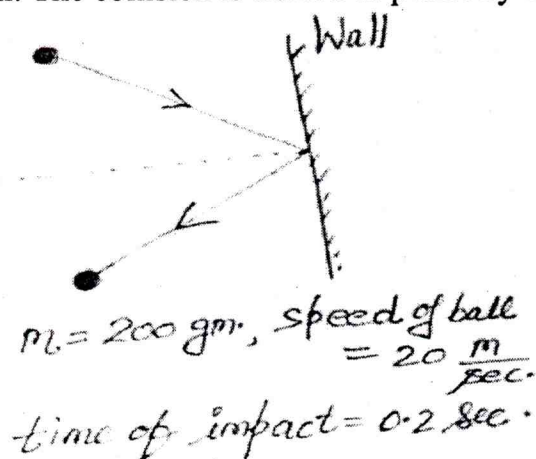 Wall
m = 200 gm., speed of ball
= 20 m/sec.
time of impact = 0.2 sec.